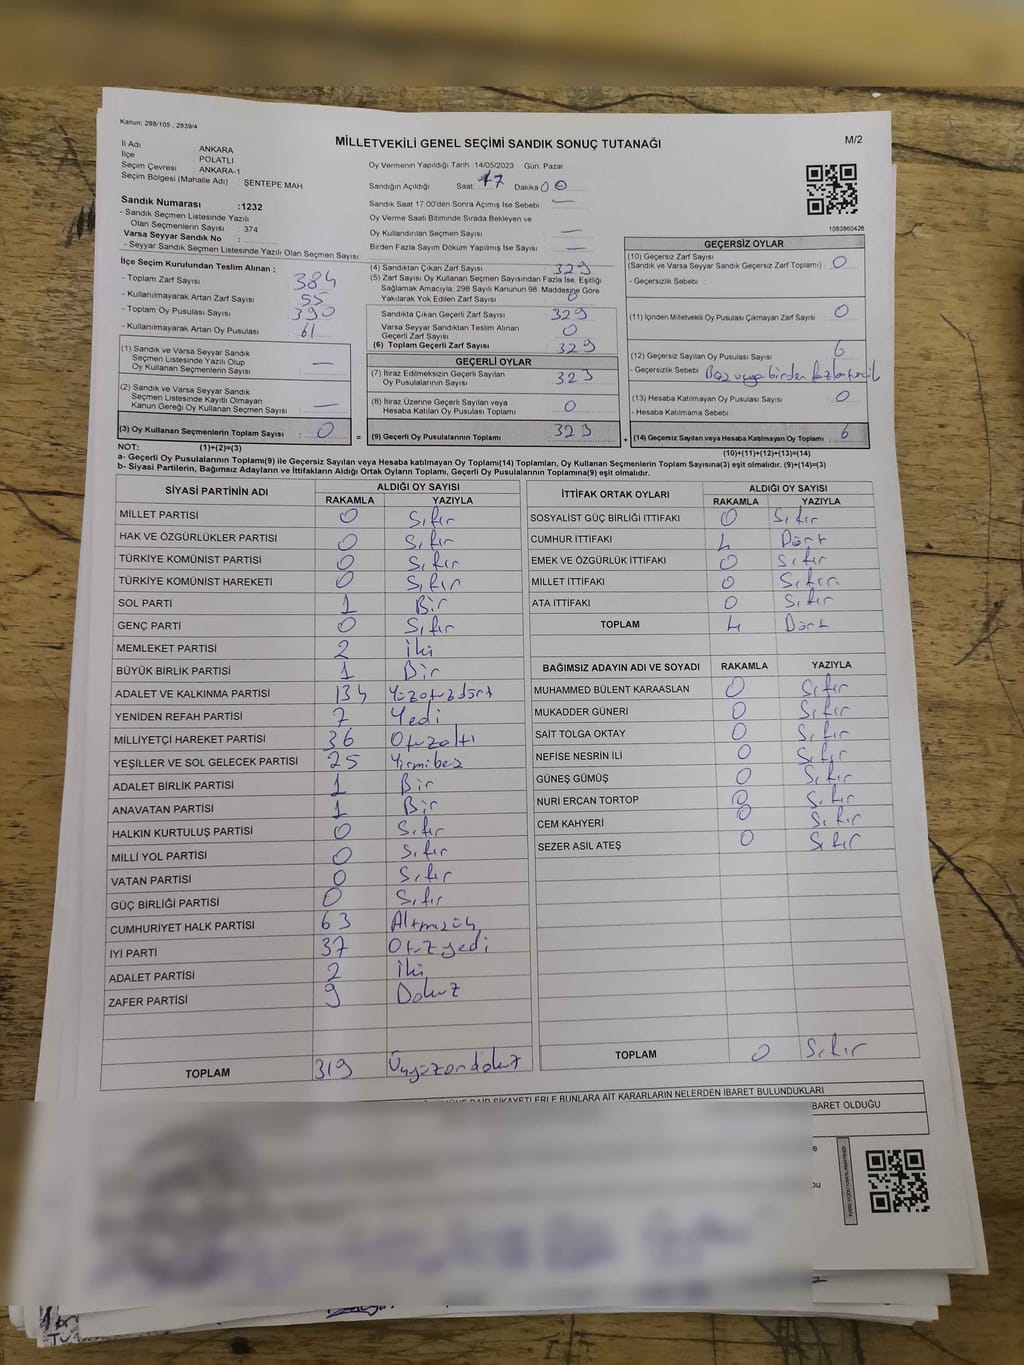 Kanun: 298/105 , 2839/4
MİLLETVEKİLİ GENEL SEÇİMİ SANDIK SONUÇ TUTANAĞI
M/2
İl Adı : ANKARA
İlçe : POLATLI
Seçim Çevresi : ANKARA-1
Seçim Bölgesi (Mahalle Adı) : ŞENTEPE MAH.
Sandık Numarası :1232
- Sandık Seçmen Listesinde Yazılı
Olan Seçmenlerin Sayısı : 374
Varsa Seyyar Sandık No :
- Seyyar Sandık Seçmen Listesinde Yazılı Olan Seçmen Sayısı:
Oy Vermenin Yapıldığı Tarih :14/05/2023 Gün: Pazar
Sandığın Açıldığı Saat: 17 Dakika 00
Sandık Saat 17:00'den Sonra Açımış İse Sebebi : —
Oy Verme Saati Bitiminde Sırada Bekleyen ve
Oy Kullandırılan Seçmen Sayısı : —
Birden Fazla Sayım Döküm Yapılmış İse Sayısı : —
1083860426
İlçe Seçim Kurulundan Teslim Alınan :
- Toplam Zarf Sayısı : 384
- Kullanılmayarak Artan Zarf Sayısı : 55
- Toplam Oy Pusulası Sayısı : 390
- Kullanılmayarak Artan Oy Pusulası : 61
(1) Sandık ve Varsa Seyyar Sandık
Seçmen Listesinde Yazılı Olup
Oy Kullanan Seçmenlerin Sayısı : —
(2) Sandık ve Varsa Seyyar Sandık
Seçmen Listesinde Kayıtlı Olmayan
Kanun Gereği Oy Kullanan Seçmen Sayısı : —
(3) Oy Kullanan Seçmenlerin Toplam Sayısı : 0
(4) Sandıktan Çıkan Zarf Sayısı : 329
(5) Zarf Sayısı Oy Kullanan Seçmen Sayısından Fazla İse, Eşitliği
Sağlamak Amacıyla; 298 Sayılı Kanunun 98. Maddesine Göre
Yakılarak Yok Edilen Zarf Sayısı : 0
Sandıkta Çıkan Geçerli Zarf Sayısı : 329
Varsa Seyyar Sandıktan Teslim Alınan
Geçerli Zarf Sayısı : 0
(6) Toplam Geçerli Zarf Sayısı : 329
GEÇERLİ OYLAR
(7) İtiraz Edilmeksizin Geçerli Sayılan
Oy Pusulalarının Sayısı : 323
(8) İtiraz Üzerine Geçerli Sayılan veya
Hesaba Katılan Oy Pusulası Toplamı : 0
= (9) Geçerli Oy Pusulalarının Toplamı : 323
GEÇERSİZ OYLAR
(10) Geçersiz Zarf Sayısı
(Sandık ve Varsa Seyyar Sandık Geçersiz Zarf Toplamı) : 0
- Geçersizlik Sebebi :
(11) İçinden Milletvekili Oy Pusulası Çıkmayan Zarf Sayısı : 0
(12) Geçersiz Sayılan Oy Pusulası Sayısı : 6
- Geçersizlik Sebebi : Boş veya birden fazla
(13) Hesaba Katılmayan Oy Pusulası Sayısı : 0
- Hesaba Katılmama Sebebi :
+ (14) Geçersiz Sayılan veya Hesaba Katılmayan Oy Toplamı : 6
NOT: (1)+(2)=(3)
(10)+(11)+(12)+(13)=(14)
a- Geçerli Oy Pusulalarının Toplamı(9) ile Geçersiz Sayılan veya Hesaba katılmayan Oy Toplamı(14) Toplamları, Oy Kullanan Seçmenlerin Toplam Sayısına(3) eşit olmalıdır. (9)+(14)=(3)
b- Siyasi Partilerin, Bağımsız Adayların ve İttifakların Aldığı Ortak Oyların Toplamı, Geçerli Oy Pusulalarının Toplamına(9) eşit olmalıdır.
SİYASİ PARTİNİN ADI ALDIĞI OY SAYISI
RAKAMLA YAZIYLA
MİLLET PARTİSİ 0 Sıfır
HAK VE ÖZGÜRLÜKLER PARTİSİ 0 Sıfır
TÜRKİYE KOMÜNİST PARTİSİ 0 Sıfır
TÜRKİYE KOMÜNİST HAREKETİ 0 Sıfır
SOL PARTİ 1 Bir
GENÇ PARTİ 0 Sıfır
MEMLEKET PARTİSİ 2 İki
BÜYÜK BİRLİK PARTİSİ 1 Bir
ADALET VE KALKINMA PARTİSİ 134 Yüzotuzdört
YENİDEN REFAH PARTİSİ 7 Yedi
MİLLİYETÇİ HAREKET PARTİSİ 36 Otuzaltı
YEŞİLLER VE SOL GELECEK PARTİSİ 25 Yirmibeş
ADALET BİRLİK PARTİSİ 1 Bir
ANAVATAN PARTİSİ 1 Bir
HALKIN KURTULUŞ PARTİSİ 0 Sıfır
MİLLİ YOL PARTİSİ 0 Sıfır
VATAN PARTİSİ 0 Sıfır
GÜÇ BİRLİĞİ PARTİSİ 0 Sıfır
CUMHURİYET HALK PARTİSİ 63 Altmışüç
İYİ PARTİ 37 Otuzyedi
ADALET PARTİSİ 2 İki
ZAFER PARTİSİ 9 Dokuz
TOPLAM 319 Üçyüzondokuz
İTTİFAK ORTAK OYLARI ALDIĞI OY SAYISI
RAKAMLA YAZIYLA
SOSYALİST GÜÇ BİRLİĞİ İTTİFAKI 0 Sıfır
CUMHUR İTTİFAKI 4 Dört
EMEK VE ÖZGÜRLÜK İTTİFAKI 0 Sıfır
MİLLET İTTİFAKI 0 Sıfır
ATA İTTİFAKI 0 Sıfır
TOPLAM 4 Dört
BAĞIMSIZ ADAYIN ADI VE SOYADI RAKAMLA YAZIYLA
MUHAMMED BÜLENT KARAASLAN 0 Sıfır
MUKADDER GÜNERİ 0 Sıfır
SAİT TOLGA OKTAY 0 Sıfır
NEFİSE NESRİN İLİ 0 Sıfır
GÜNEŞ GÜMÜŞ 0 Sıfır
NURİ ERCAN TORTOP 0 Sıfır
CEM KAHYERİ 0 Sıfır
SEZER ASİL ATEŞ 0 Sıfır
TOPLAM 0 Sıfır
DAİR ŞİKAYETLERLE BUNLARA AİT KARARLARIN NELERDEN İBARET BULUNDUKLARI
İBARET OLDUĞU